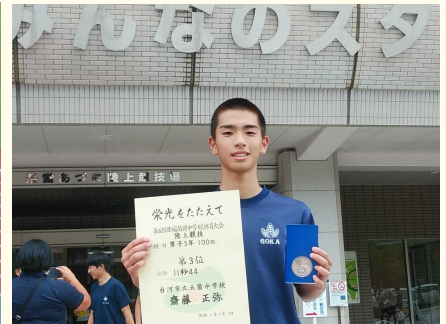 みんなのスタ
あづま陸上競技場
栄光をたたえて
第65回福島県中学校体育大会
陸上競技
種目 男子3年 100m
第3位
記録 11秒44
白河市立五箇中学校
齋藤 正弥
GOKA